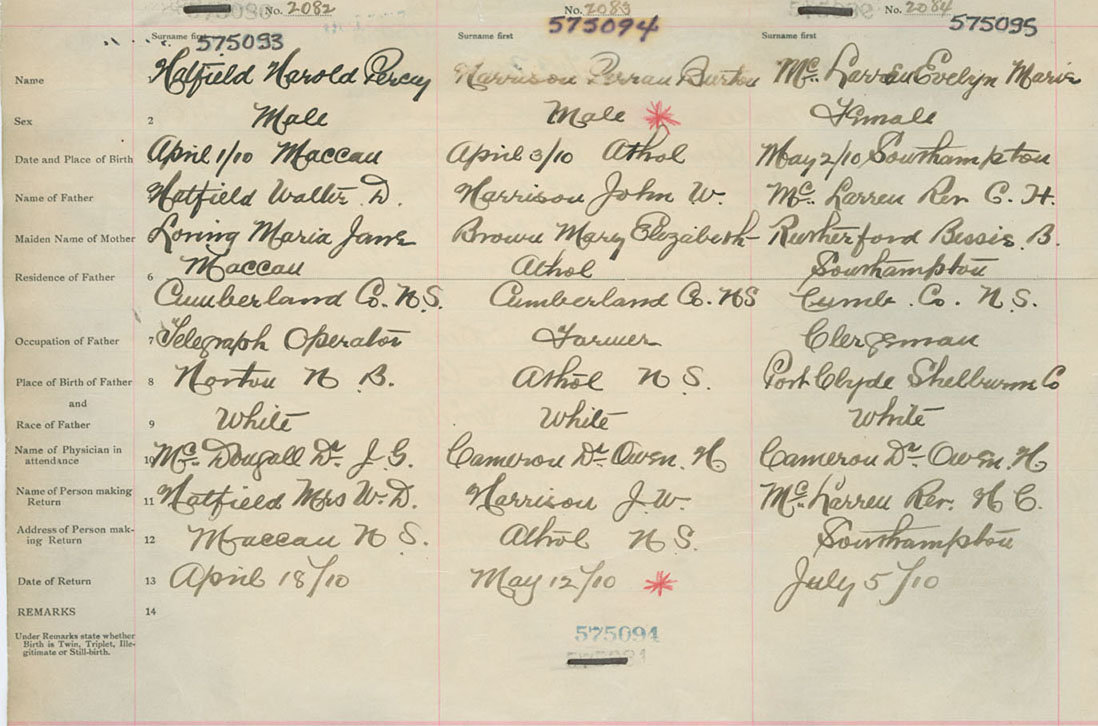 No. 2082 No. 2083 No. 2084
575093 575094 575095
Surname first Surname first Surname first
Name Hatfield Harold Percy Harrison Perran Burton Mc. Larren Evelyn Marie
Sex 2 Male Male Female
Date and Place of Birth April 1/10 Maccan April 3/10 Athol May 2/10 Southampton
Name of Father Hatfield Walter D. Harrison John W. Mc. Larren Rev C. H.
Maiden Name of Mother Loving Maria Jane Brown Mary Elizabeth Rutherford Bessie. B.
Maccan Athol Southampton
Residence of Father 6
Cumberland Co. N.S. Cumberland Co. NS Cumb. Co. N.S.
Occupation of Father 7 Telegraph Operator Farmer Clergeman
Place of Birth of Father 8 Norton N B. Athol N S. Port Clyde Shelburne Co
and
Race of Father 9 White White White
Name of Physician in
attendance 10 Mc. Dougall Dr. J. G. Cameron Dr. Owen. H Cameron Dr. Owen. H
Name of Person making
Return 11 Hatfield Mrs W. D. Harrison J. W. Mc. Larren Rev. H C.
Address of Person mak-
ing Return 12 Maccan N S. Athol N S. Southampton
Date of Return 13 April 18/10 May 12/10 July 5/10
REMARKS 14
Under Remarks state whether
Birth is Twin, Triplet, Ille-
gitimate or Still-birth.
575094